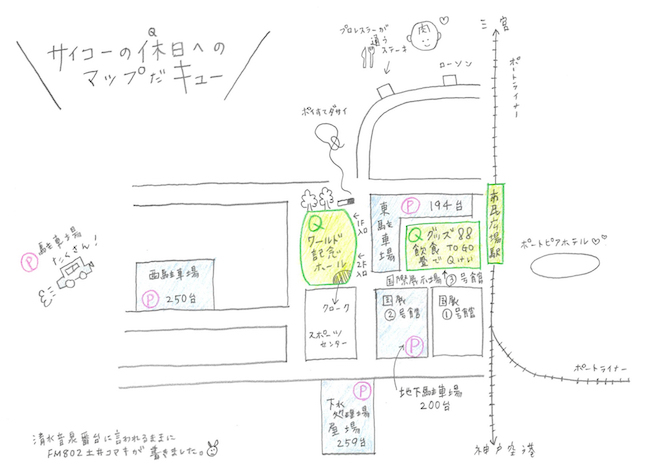 サイコーの休日への
Q
マップだキュー
プロレスラーが
通う
ステーキ
肉
ローソン
三宮
ポートライナー
ポイすてダサイ
駐車場
たくさん!
P
西駐車場
P 250台
Q
ワールド
記念
ホール
1F
入口
2F
入口
東
駐
車
場
P 194台
Q グッズ 88
飲食 TO GO
市民広場駅
ポートピアホテル
国際展示場 3号館
クローク
スポーツ
センター
国展
②号館
P
国展
①号館
地下駐車場
200台
ポートライナー
P
下水
処理場
259台
神戸空港
清水音泉番台に言われるままに
FM802土井コマキが書きました。